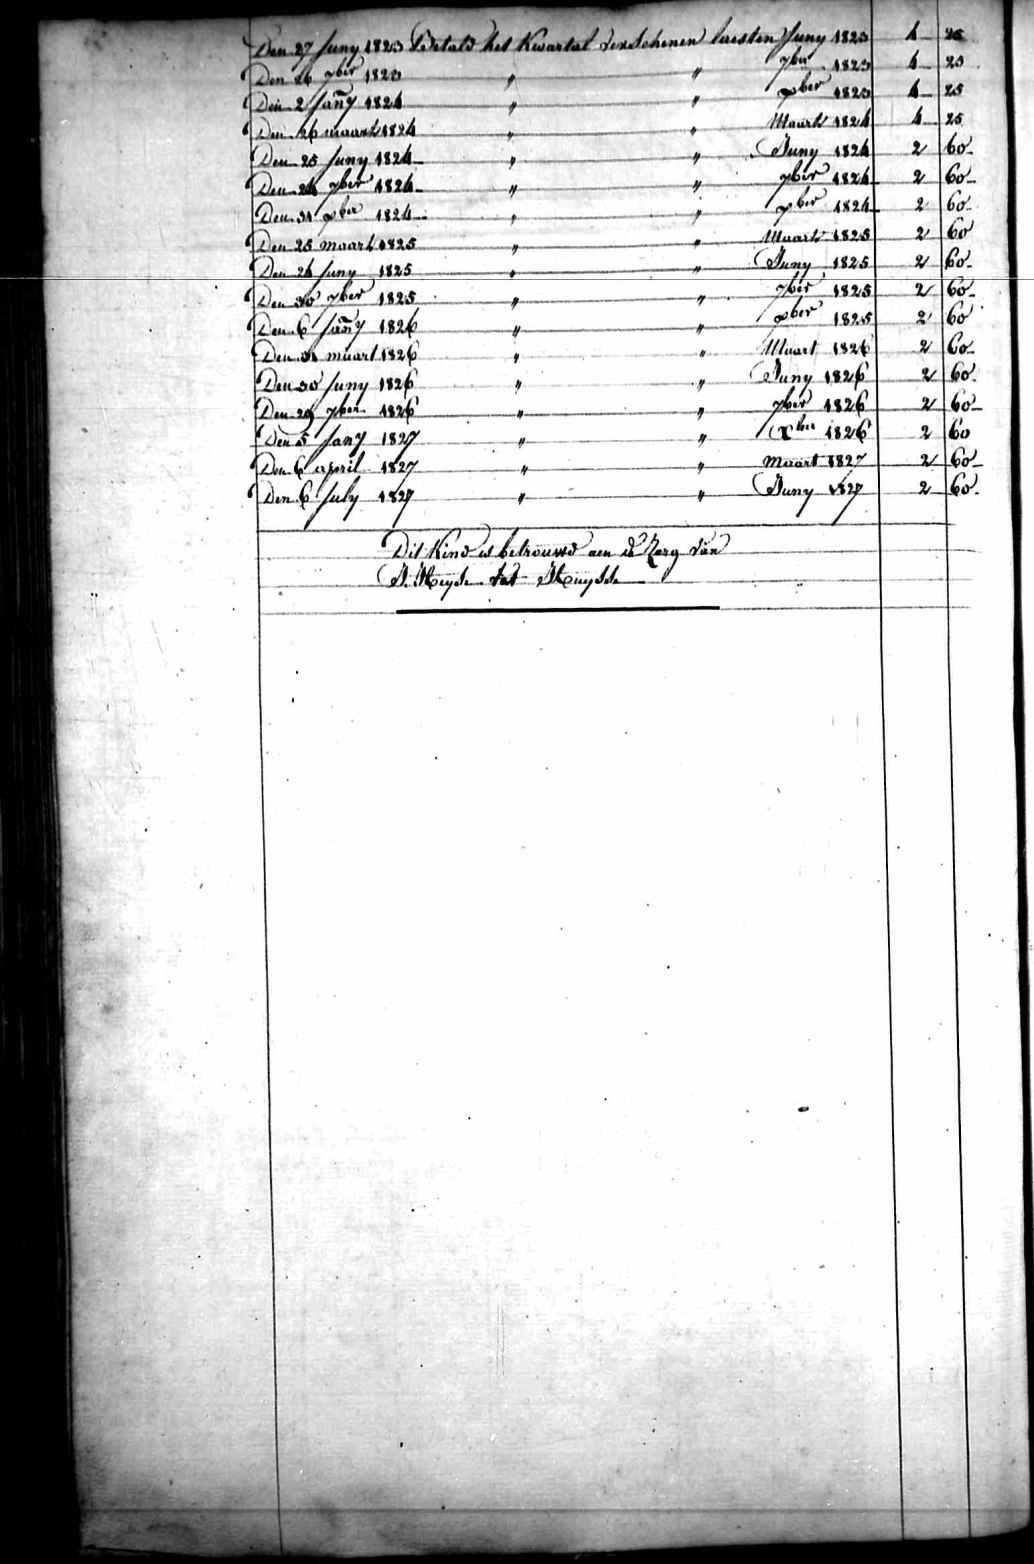 Den 27 Juny 1823 Betald het Kwartal verschenen laesten Juny 1823 4 25
Den 26 7ber 1823 " " 7ber 1823 4 25
Den 2 Jany 1824 " " xber 1823 4 25
Den 26 maart 1824 " " Maart 1824 4 25
Den 25 Juny 1824 " " Juny 1824 2 60
Den 24 7ber 1824 " " 7ber 1824 2 60
Den 31 xber 1824 " " xber 1824 2 60
Den 25 maart 1825 " " Maart 1825 2 60
Den 24 Juny 1825 " " Juny 1825 2 60
Den 30 7ber 1825 " " 7ber 1825 2 60
Den 6 Jany 1826 " " xber 1825 2 60
Den 31 maart 1826 " " Maart 1826 2 60
Den 30 Juny 1826 " " Juny 1826 2 60
Den 29 7ber 1826 " " 7ber 1826 2 60
Den 5 Jany 1827 " " Xber 1826 2 60
Den 6 april 1827 " " Maart 1827 2 60
Den 6 July 1827 " " Juny 1827 2 60
Dit Kind is betrouwd aen de Zorg van
tot Huysse